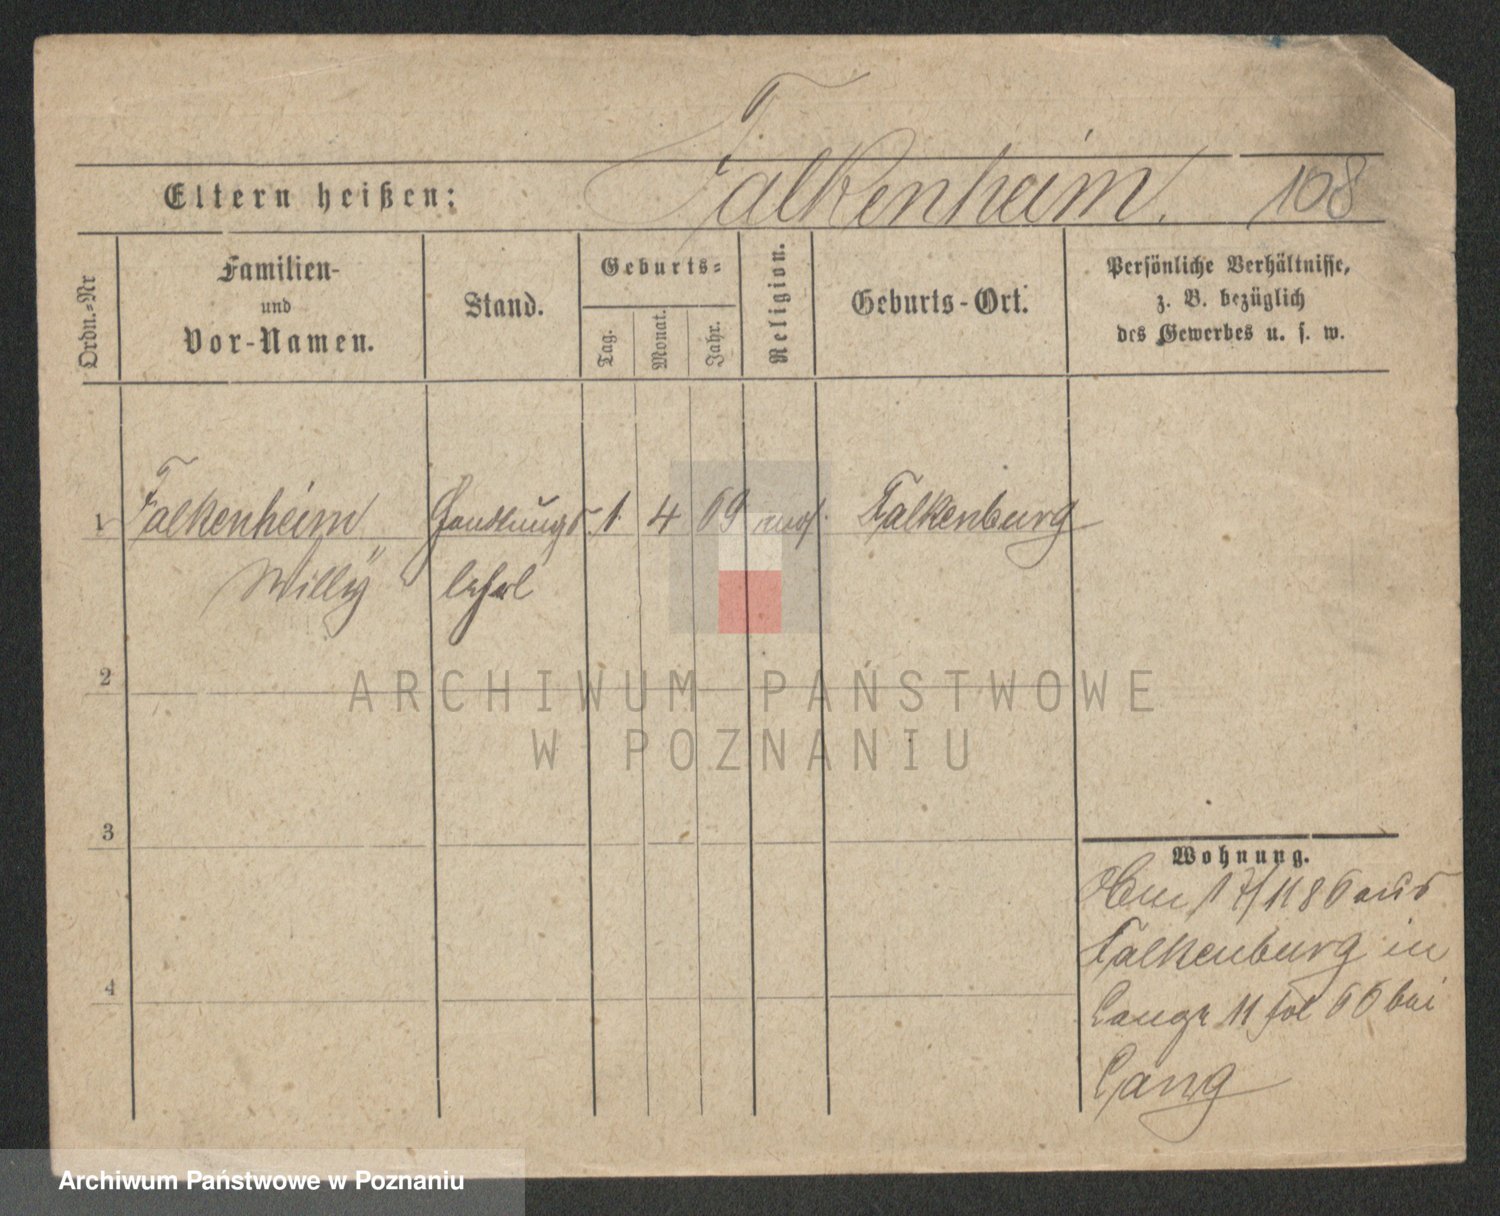 Falkenheim. 108
Eltern heißen:
Ordn.-Nr
Familien-
und
Vor-Namen.
Stand.
Geburts-
Tag.
Monat.
Jahr.
Religion.
Geburts-Ort.
Persönliche Verhältnisse,
z. B. bezüglich
des Gewerbes u. s. w.
1 Falkenheim Handlungs 1. 4 69 mos. Falkenburg
Willy lehrl
2
3
4
Wohnung.
17/11 86 aus
Falkenburg in
Lange 11 fol 66 bei
Lang
ARCHIWUM PAŃSTWOWE
W POZNANIU
Archiwum Państwowe w Poznaniu